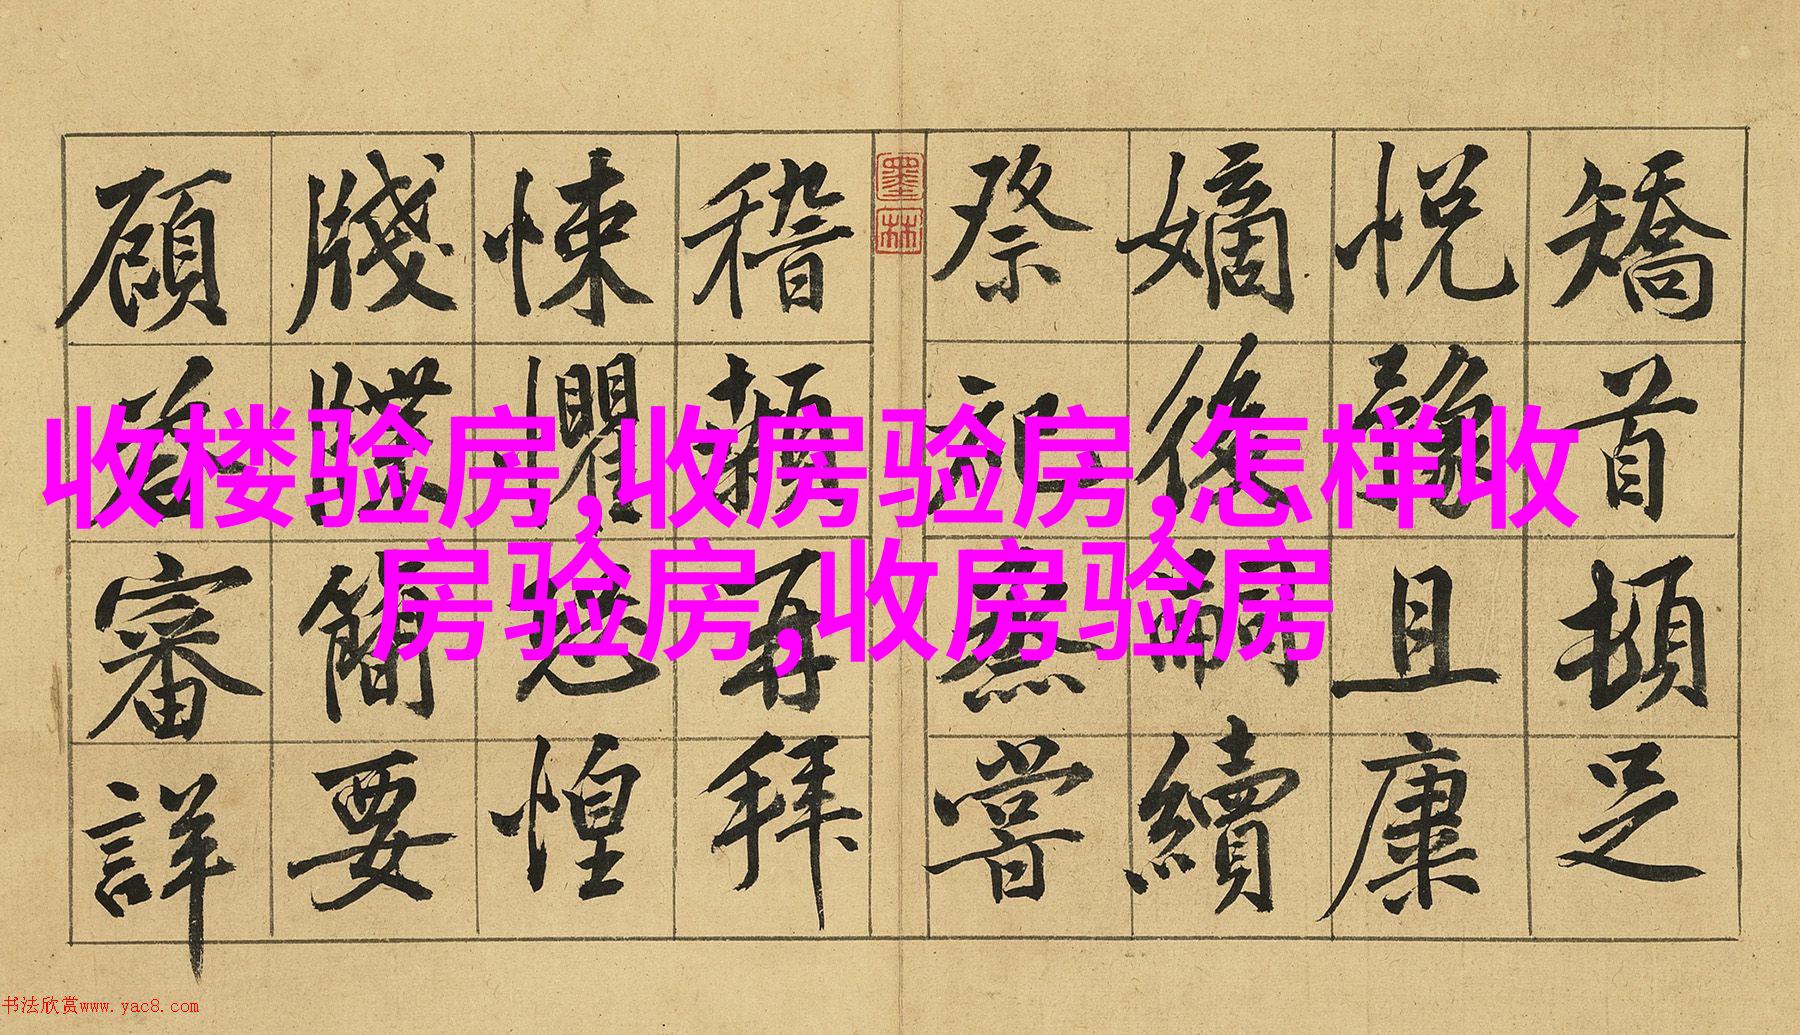 矯首頓足
悅豫且康
嫡後嗣續
祭祀嘗
墨林
稽顙再拜
悚懼恐惶
牋牒簡要
顧答審詳
收楼验房,收房验房,怎样收
房验房,收房验房
书法欣赏www.yac8.com